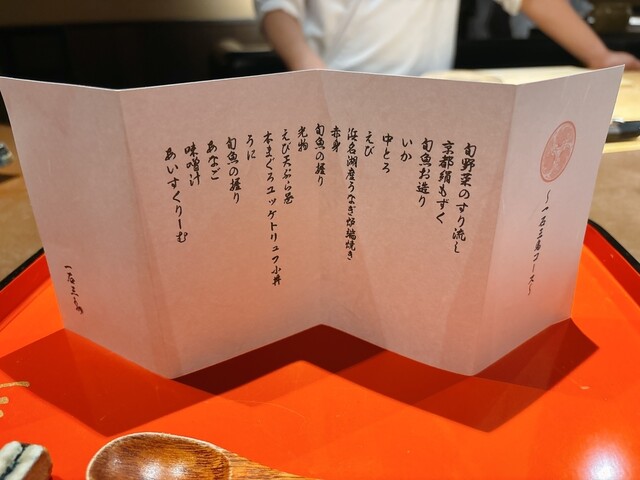 旬野菜のすり流し
京都絹もずく
旬魚お造り
いか
中とろ
えび
浜名湖産うなぎ炉端焼き
赤身
旬魚の握り
光物
えび天ぷら巻
本まぐろユッケトリュフ小丼
うに
旬魚の握り
あなご
味噌汁
あいすくりーむ